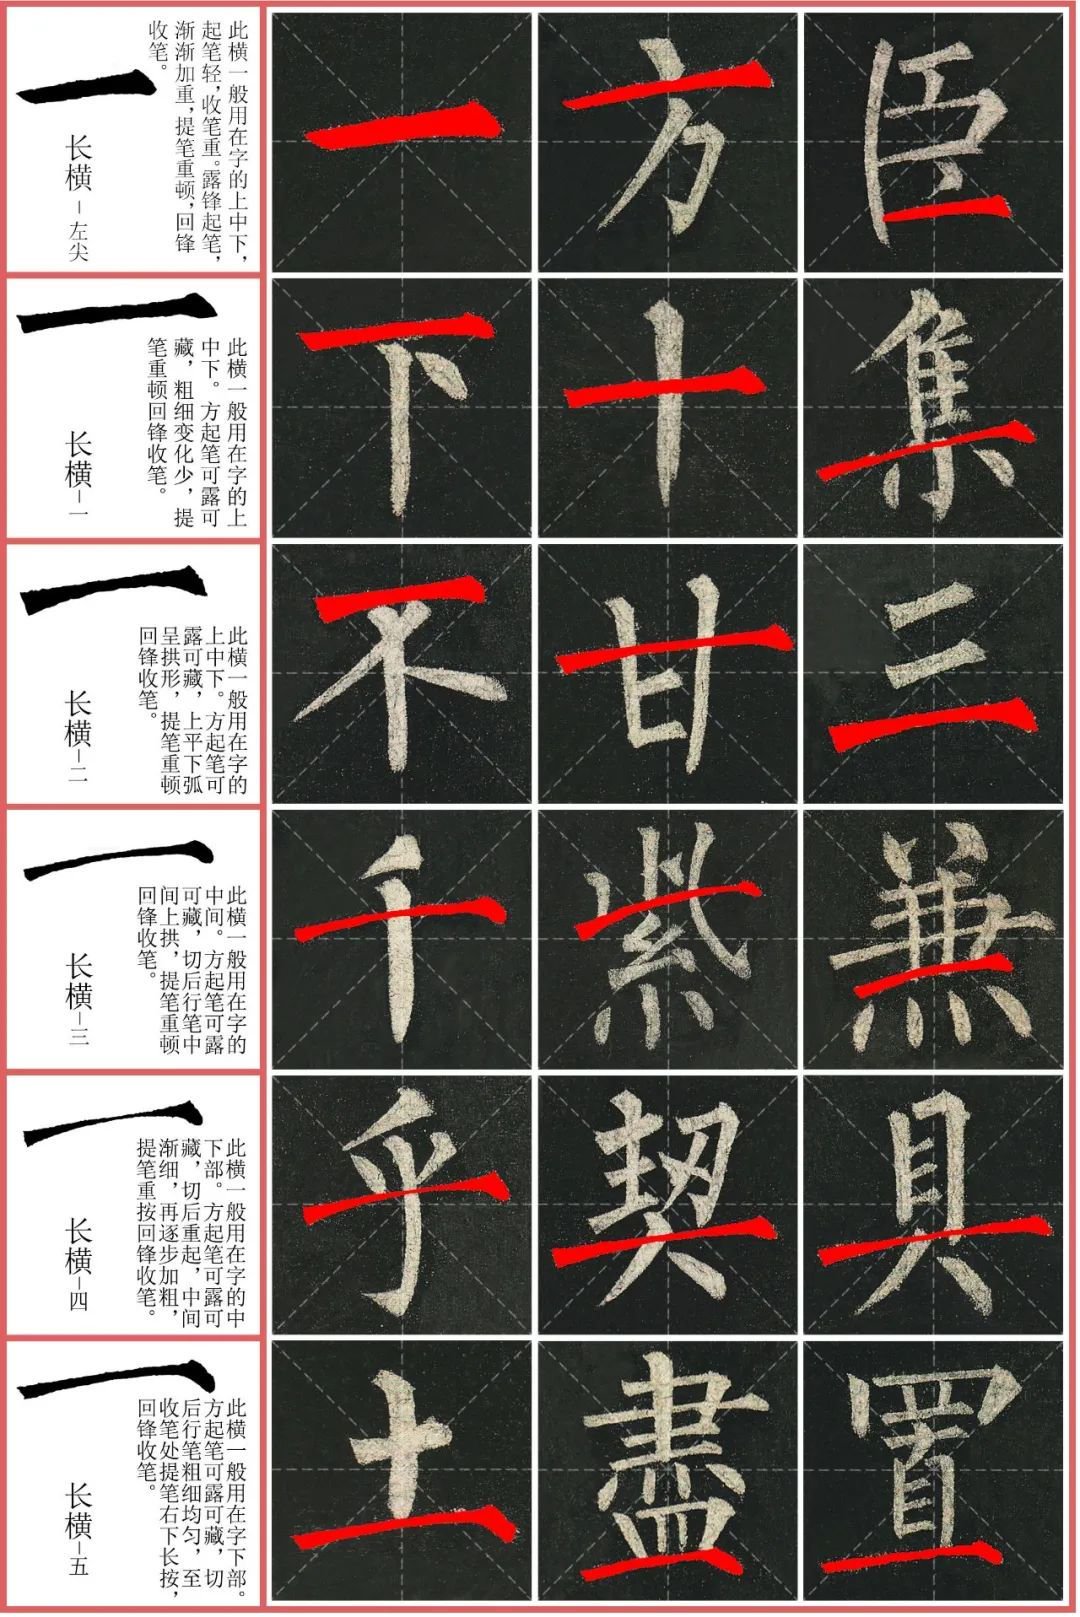 此横一般用在字的上中下，
起笔轻，收笔重。露锋起笔，
渐渐加重，提笔重顿，回锋
收笔。
长横-左尖
一
方
臣
此横一般用在字的上
中下。方起笔可露可
藏，粗细变化少，提
笔重顿回锋收笔。
长横-一
下
十
集
此横一般用在字的
上中下。方起笔可
露可藏，上平下弧
呈拱形，提笔重顿
回锋收笔。
长横-二
不
甘
三
此横一般用在字的
中间。方起笔可露
可藏，切后行笔中
间上拱，提笔重顿
回锋收笔。
长横-三
千
紫
兼
此横一般用在字的中
下部。方起笔可露可
藏，切后重起，中间
渐细，再逐步加粗，
提笔重按回锋收笔。
长横-四
乎
契
具
此横一般用在字下部。
方起笔可露可藏，切
后行笔粗细均匀，至
收笔处提笔右下长按，
回锋收笔。
长横-五
土
盡
置